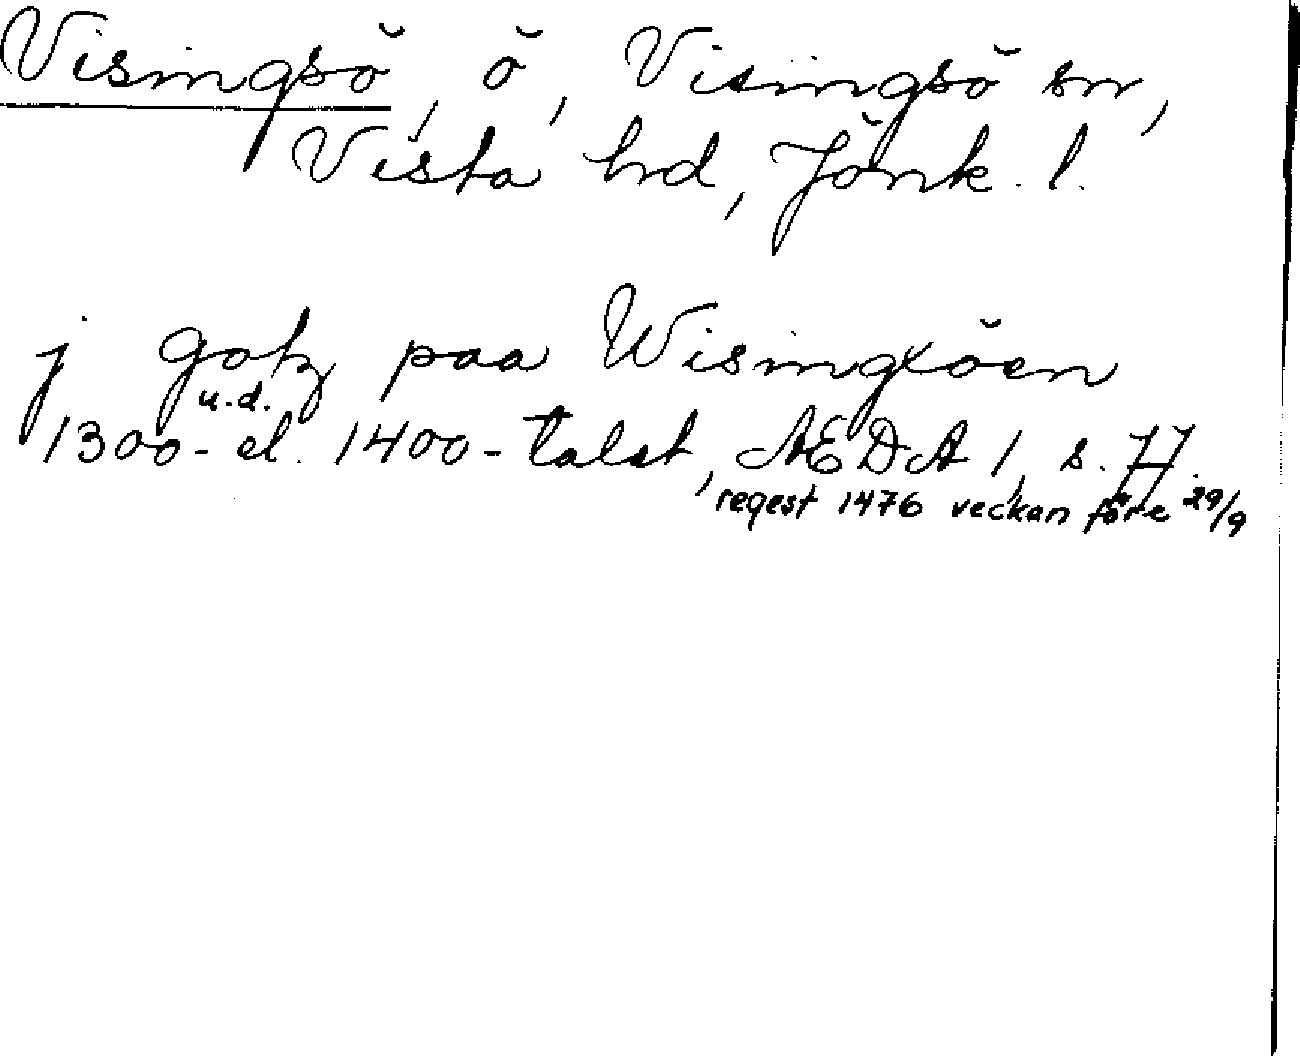 Visingsö, ö, Visingsö sn,
Vista hd, Jönk. l.
j gotz paa Wisingxöen
u.d.
1300- el. 1400-talet, ÆDA 1, s. 77.
regest 1476 veckan före 29/9